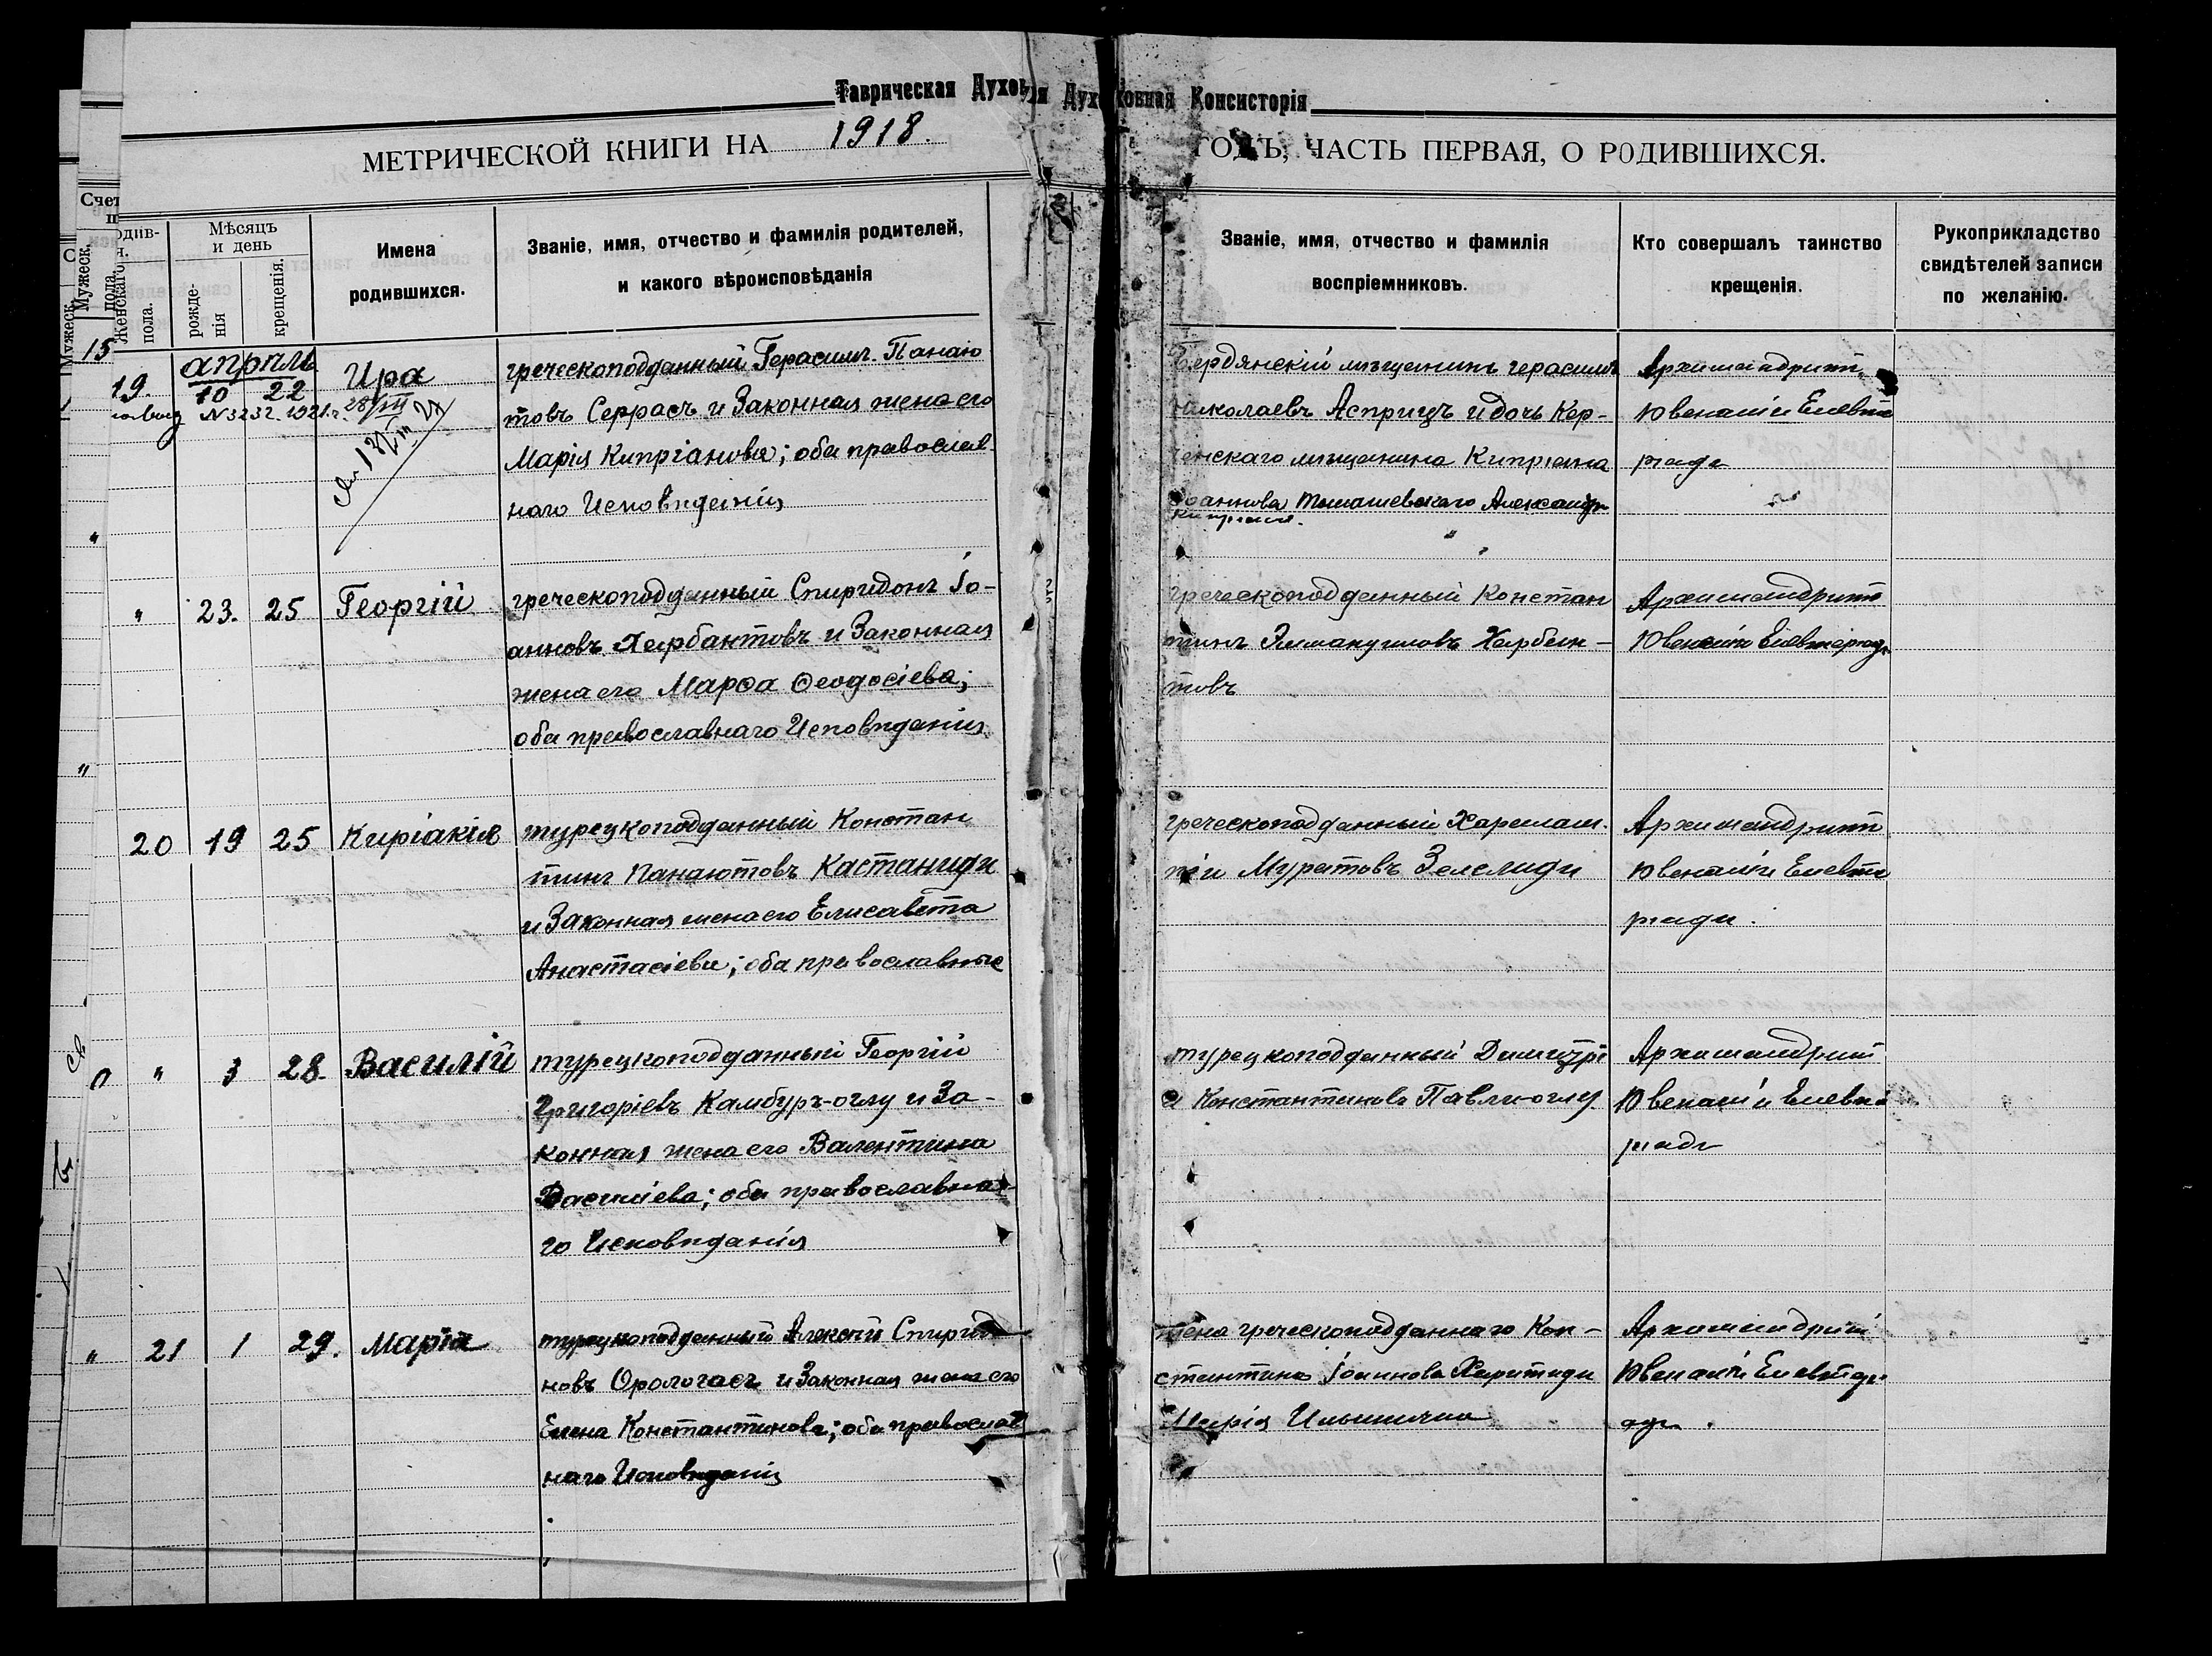 Таврическая Духовная Консисторія
МЕТРИЧЕСКОЙ КНИГИ НА 1918. ГОДЪ, ЧАСТЬ ПЕРВАЯ, О РОДИВШИХСЯ.
Мужеск. пола.
Женскаго пола.
Мѣсяцъ и день
рожденія
крещенія.
Имена родившихся.
Званіе, имя, отчество и фамилія родителей, и какого вѣроисповѣданія
Званіе, имя, отчество и фамилія воспріемниковъ.
Кто совершалъ таинство крещенія.
Рукоприкладство свидѣтелей записи по желанію.
15
апрѣль
19. 10 22 Ира
N 3232 1921 г. 28/III
греческоподданный Герасимъ Панаіо
товъ Серрасъ и Законная жена его
Марія Кипріанова; оба православ
наго Исповѣданія
Бердянскій мѣщанинъ Герасимъ
Николаевъ Асприцъ и дочь Кер-
ченскаго мѣщанина Кипріана
Іоаннова Томашевскаго Александра
Архимандритъ
Ювеналій Елевте
ріади
" 23. 25 Георгій
греческоподданный Спиридонъ Іо-
анновъ Харбантовъ и Законная
жена его Марѳа Ѳеодосіева;
оба православнаго Исповѣданія
греческоподданный Констан
тинъ Эммануиловъ Харбан-
товъ
Архимандритъ
Ювеналій Елевтеріади
20 19 25 Киріакія
турецкоподданный Констан
тинъ Панаіотовъ Кастаниди
и Законная жена его Елисавета
Анастасіева; оба православные
греческоподданный Харалам
пій Муратовъ Зелелиди
Архимандритъ
Ювеналій Елевте
ріади.
" 3 28. Василій
турецкоподданный Георгій
Григоріевъ Камбуръ-оглу и За-
конная жена его Валентина
Василіева; оба православна-
го Исповѣданія
турецкоподданный Димитрі
й Константиновъ Павли-оглу.
Архимандритъ
Ювеналій Елевте
ріади
" 21 1 29. Марія
турецкоподданный Алексій Спиридо
новъ Орологасъ и Законная жена его
Елена Константинова; оба православ
наго Исповѣданія
жена греческоподданнаго Кон-
стантина Іоаннова Харитиди
Марія Ильинична
Архимандритъ
Ювеналій Елевтері
ади.